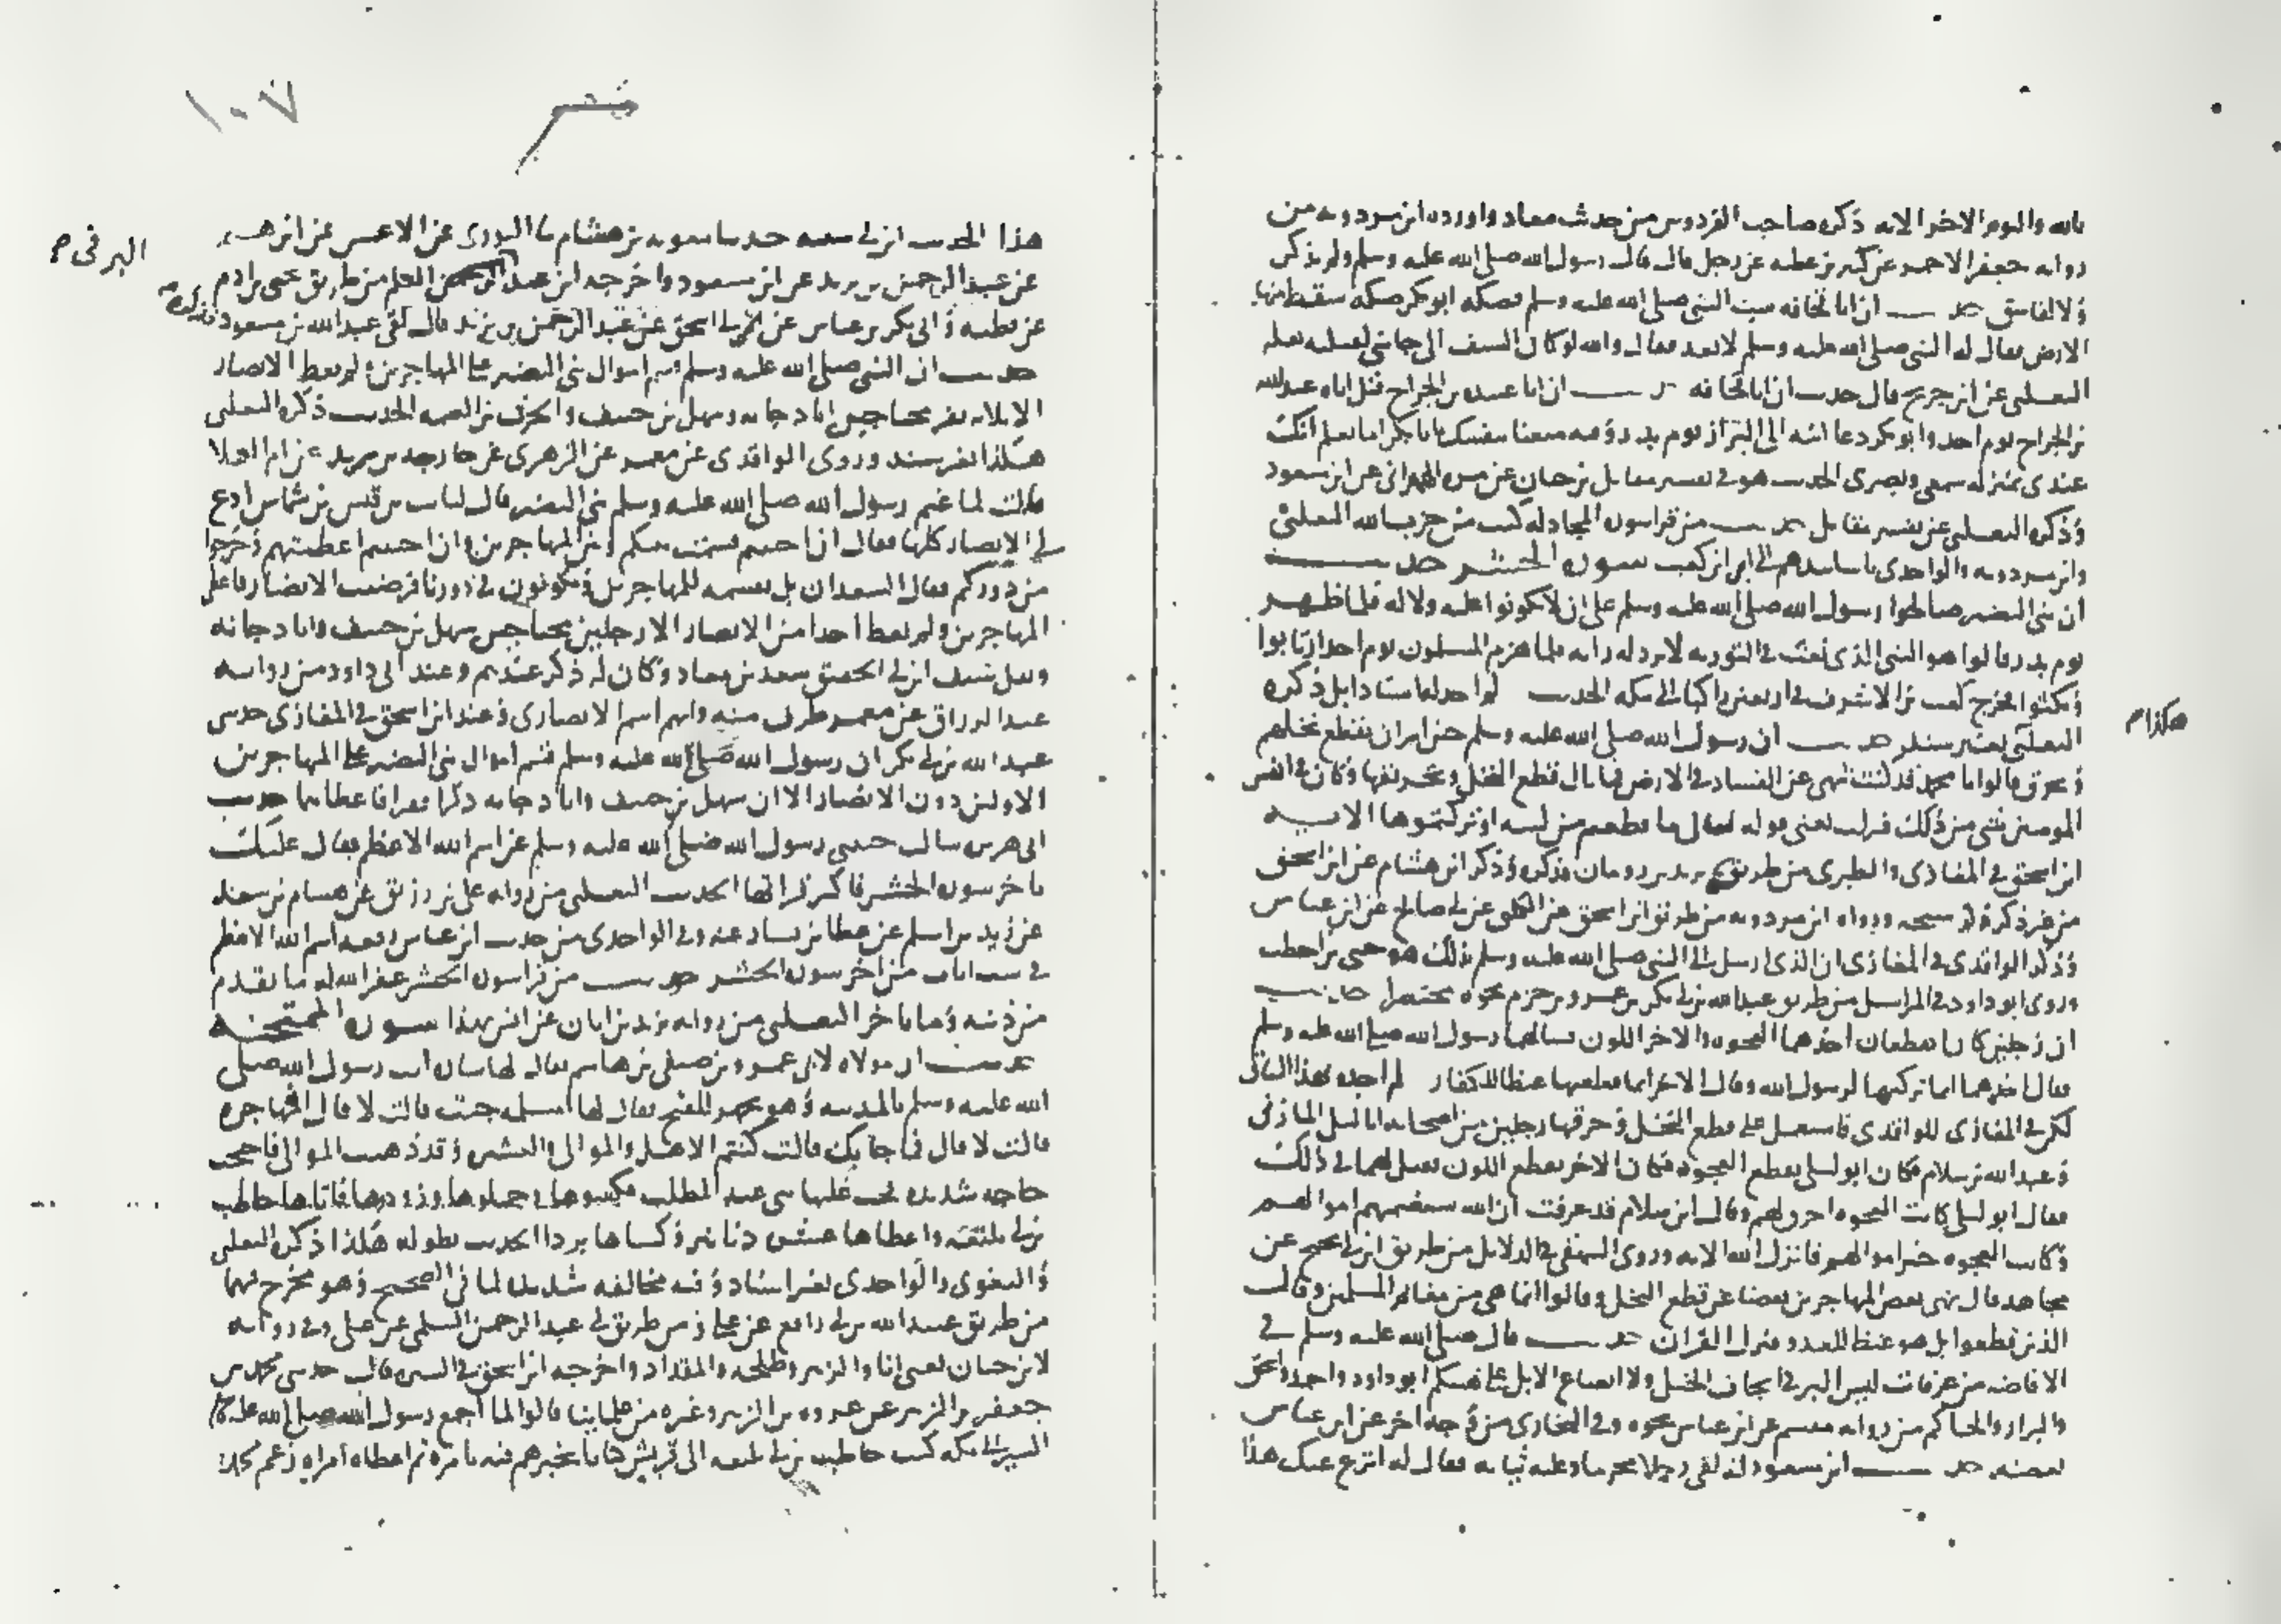 بالله واليوم الاخر الاية ذكره صاحب الفردوس من حديث معاذ واورده ابن مردويه من
رواية جعفر الاحمر عن كثير بن عطية عن رجل قال قال رسول الله صلى الله عليه وسلم ولم يذكر
ولا لفاسق حديث ان ابا قحافة سب النبي صلى الله عليه وسلم فصكه ابو بكر صكة سقط منها
الارض فقال له النبي صلى الله عليه وسلم لا تعد فقال والله لو كان السيف الى جانبي لفعلته نقله
الثعلبي عن ابن جريج قال حدثت ان ابا قحافة حديث ان ابا عبيدة بن الجراح قتل اباه عبد الله
بن الجراح يوم احد وابو بكر دعا ابنه الى البراز يوم بدر وفيه متعنا بنفسك يا ابا بكر اما تعلم انك
عندي بمنزلة سمعي وبصري الحديث هو في تفسير مقاتل بن حيان عن مرة الهمداني عن ابن مسعود
وذكره الثعلبي عن تفسير مقاتل حديث من قرا سورة المجادلة كتب من حزب الله الثعلبي
وابن مردويه والواحدي باسانيدهم الى ابي بن كعب سورة الحشر حديث
ان بني النضير صالحوا رسول الله صلى الله عليه وسلم على ان لا يكونوا عليه ولا له فلما ظهر
يوم بدر قالوا هو النبي الذي نعت في التورية لا ترد له راية فلما هزم المسلمون يوم احد ارتابوا
ونكثوا فخرج كعب بن الاشرف في اربعين راكبا الى مكة الحديث لم اجد له اسنادا بل ذكره
الثعلبي بغير سند حديث ان رسول الله صلى الله عليه وسلم حين امر ان تقطع نخلهم
وتحرق قالوا يا محمد قد كنت تنهى عن الفساد في الارض فما بال قطع النخل وتحريقها وكان في انفس
المومنين شي من ذلك فنزلت يعني قوله تعالى ما قطعتم من لينة او تركتموها الاية
ابن اسحق في المغازي والطبري من طريق يزيد بن رومان فذكره وذكر ابن هشام عن ابن اسحق
من غير ذكر شيخه ورواه ابن مردويه من طريق ابن اسحق عن الكلبي عن ابي صالح عن ابن عباس
وذكر الواقدي في المغازي ان الذي ارسل الى النبي صلى الله عليه وسلم بذلك هو حيي بن اخطب
وروى ابو داود في المراسيل من طريق عبد الله بن ابي بكر بن عمرو بن حزم نحوه مختصرا حديث
ان رجلين كانا يقطعان احدهما العجوة والاخر اللون فسالهما رسول الله صلى الله عليه وسلم
فقال احدهما انما تركتها لرسول الله وقال الاخر انما قطعتها غيظا للكفار لم اجده بهذا السياق
لكن في المغازي للواقدي فاستعمل على قطع النخل وحرقها رجلين من اصحابه ابا ليلى المازني
وعبد الله بن سلام فكان ابو ليلى يقطع العجوة وكان الاخر يقطع اللون فقيل لهما في ذلك
فقال ابو ليلى كانت العجوة احرق لهم وقال ابن سلام قد عرفت ان الله سيغنمهم اموالهم
وكانت العجوة خير اموالهم فانزل الله الاية وروى البيهقي في الدلايل من طريق ابن ابي نجيح عن
مجاهد قال نهى بعض المهاجرين بعضا عن قطع النخل وقالوا انما هي من مغانم المسلمين وقالت
الذين قطعوا بل هو غيظ للعدو فنزل القران حديث قال صلى الله عليه وسلم في
الافاضة من عرفات ليس البر في ايجاف الخيل ولا ايضاع الابل على هينتكم ابو داود واحمد واسحق
والبزار والحاكم من رواية مقسم عن ابن عباس نحوه وفي البخاري من وجه اخر عن ابن عباس
بعضه حديث ابن مسعود انه لقي رجلا محرما وعليه ثيابه فقال له انزع عنك هذا
هكذا م
١٠٧
حشر
هذا الحديث ابن ابي شيبة حدثنا معوية بن هشام ثنا الثوري عن الاعمش عن ابراهيم
البر في م
عن عبد الرحمن بن يزيد عن ابن مسعود واخرجه ابن عبد البر في العلم من طريق يحيى بن ادم
عن قطبة وابي بكر بن عياش عن ابي اسحق عن عبد الرحمن بن يزيد قال لقي عبد الله بن مسعود فذكره
حديث ان النبي صلى الله عليه وسلم قسم اموال بني النضير على المهاجرين ولم يعط الانصار
الا ثلاثة نفر محتاجين ابا دجانة وسهل بن حنيف والحرث بن الصمة الحديث ذكره الثعلبي
هكذا بغير سند وروى الواقدي عن معمر عن الزهري عن خارجة بن زيد عن ام العلا
قالت لما غنم رسول الله صلى الله عليه وسلم بني النضير قال لثابت بن قيس بن شماس ادع
لي الانصار كلها فقال ان احببتم قسمت بينكم وبين المهاجرين وان احببتم اعطيتهم وخرجوا
من دوركم فقال السعدان بل نقسمه للمهاجرين ويكونون في دورنا فرضيت الانصار فاعطى
المهاجرين ولم يعط احدا من الانصار الا رجلين محتاجين سهل بن حنيف وابا دجانة
ونفل سيف ابن ابي الحقيق سعد بن معاذ وكان له ذكر عندهم وعند ابي داود من رواية
عبد الرزاق عن معمر طرف منه وابهم اسم الانصاري وعند ابن اسحق في المغازي حدثني
عبد الله بن ابي بكر ان رسول الله صلى الله عليه وسلم قسم اموال بني النضير على المهاجرين
الاولين دون الانصار الا ان سهل بن حنيف وابا دجانة ذكرا فقرا فاعطاهما حديث
ابي هريرة سالت حبيبي رسول الله صلى الله عليه وسلم عن اسم الله الاعظم فقال عليك
باخر سورة الحشر فاكثر قراتها الحديث الثعلبي من رواية علي بن رزيق عن هشام بن سعد
عن زيد بن اسلم عن عطا بن يسار عنه وفي الواحدي من حديث ابن عباس رفعه اسم الله الاعظم
في ست ايات من اخر سورة الحشر حديث من قرا سورة الحشر غفر الله له ما تقدم
من ذنبه وما تاخر الثعلبي من رواية يزيد بن ابان عن انس بهذا سورة الممتحنة
حديث ان مولاة لابي عمرو بن صيفي بن هاشم يقال لها سارة اتت رسول الله صلى
الله عليه وسلم بالمدينة وهو يتجهز للفتح فقال لها امسلمة جئت قالت لا قال افمهاجرة
قالت لا قال فما جا بك قالت كنتم الاهل والموالي والعشيرة وقد ذهبت الموالي فاحتجت
حاجة شديدة فحث عليها بني عبد المطلب فكسوها وحملوها وزودوها فاتاها حاطب
بن ابي بلتعة واعطاها عشرة دنانير وكساها بردا الحديث بطوله هكذا ذكره الثعلبي
والبغوي والواحدي بغير اسناد وفيه مخالفة شديدة لما في الصحيح وهو مخرج فيهما
من طريق عبيد الله بن ابي رافع عن علي ومن طريق ابي عبد الرحمن السلمي عن علي وفي رواية
لابن حبان بعثني انا والزبير وطلحة والمقداد واخرجه ابن اسحق في السيرة قال حدثني محمد بن
جعفر بن الزبير عن عروة بن الزبير وغيره من علمائنا قالوا لما اجمع رسول الله صلى الله عليه وسلم
السير الى مكة كتب حاطب بن ابي بلتعة الى قريش كتابا يخبرهم فيه بامره ثم اعطاه امراة زعم محمد